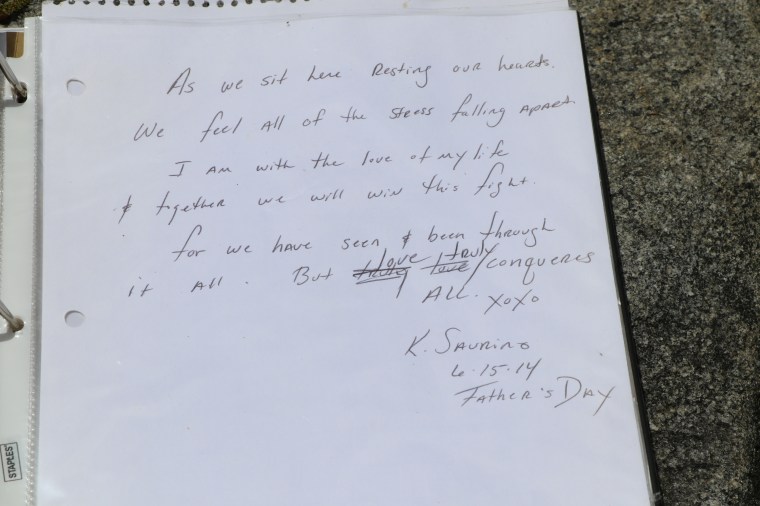 As we sit here Resting our hearts.
We feel All of the stress falling apart
I Am with the love of my life
& together we will win this fight.
for we have seen & been through
it All. But love truly conquers
All. xoxo
K. Saurino
6.15.14
Father's Day
STAPLES